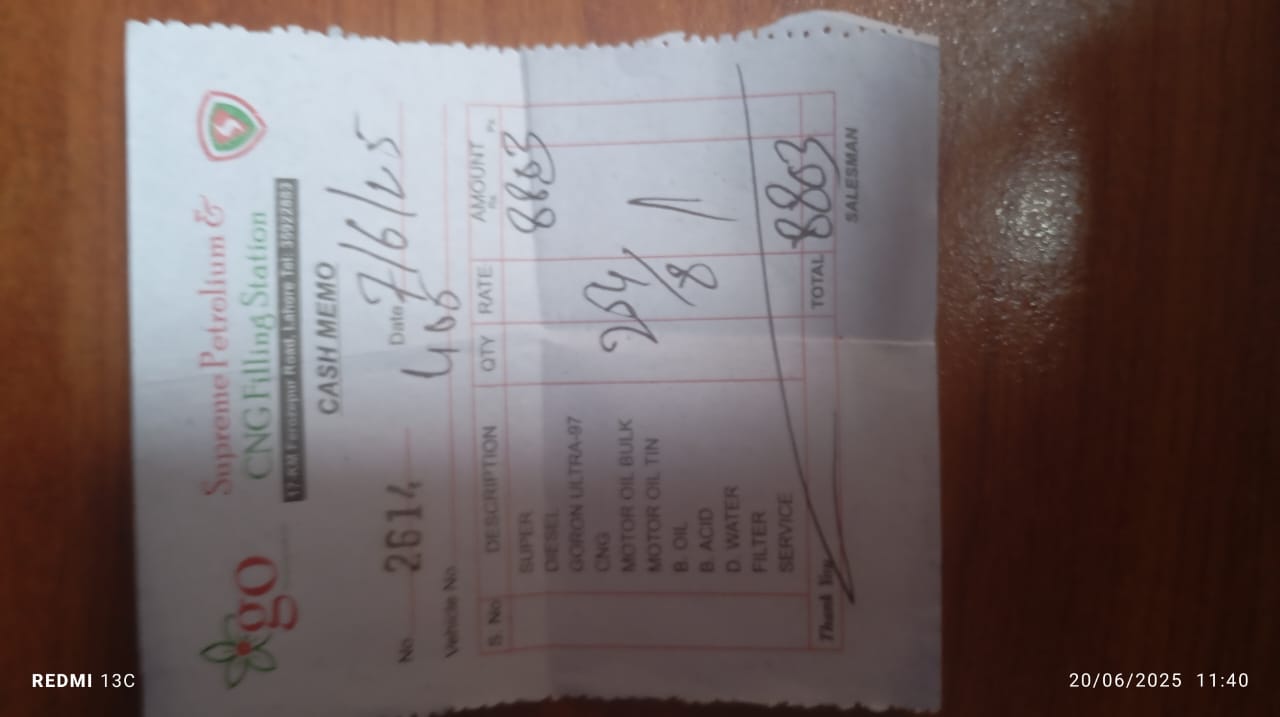 go
Supreme Petrolium &
CNG Filling Station
17-KM Ferozepur Road, Lahore Tel: 35922883
CASH MEMO
No. 2614 Date 7/6/25
Vehicle No. 400
S. No. DESCRIPTION QTY RATE AMOUNT
Rs. Ps.
SUPER 8803
DIESEL
GORON ULTRA-97
CNG 254
MOTOR OIL BULK
MOTOR OIL TIN
B. OIL
B. ACID
D. WATER
FILTER
SERVICE
Thank You TOTAL 8803
SALESMAN
REDMI 13C
20/06/2025 11:40